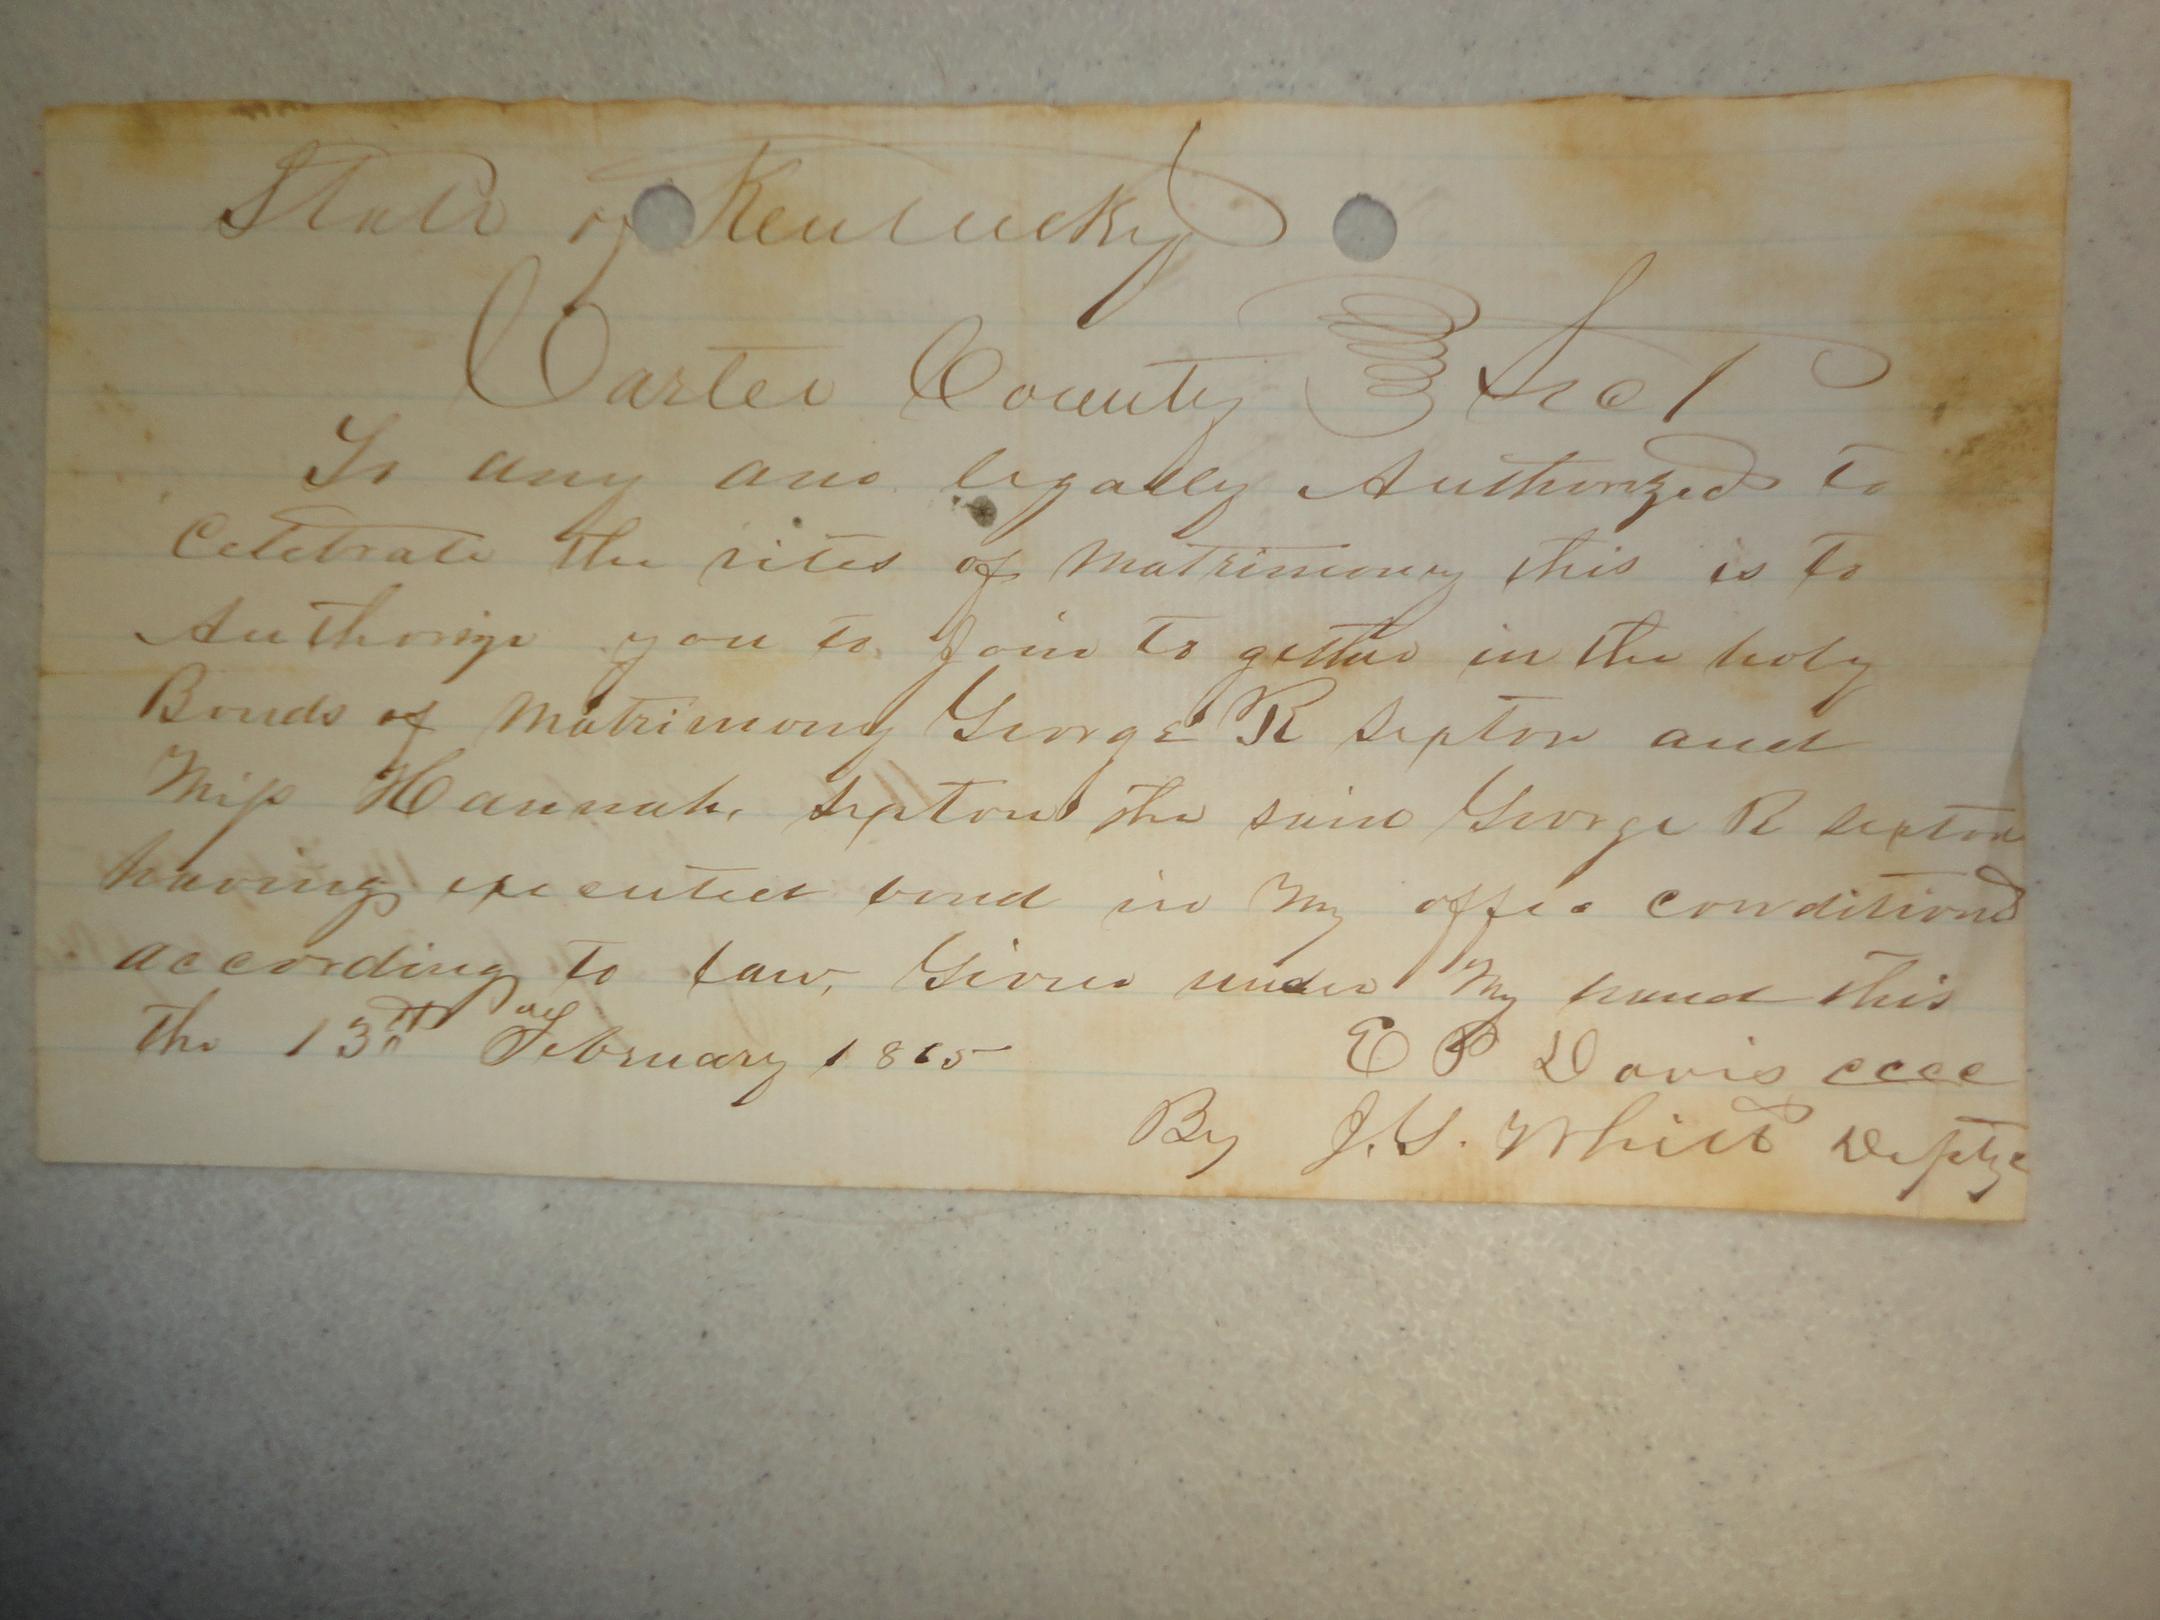 State of Kentucky
Carter County Sct
To any one legally Authorized to
Celebrate the rites of Matrimony this is to
Authorize you to Join to gether in the holy
Bonds of Matrimony George R Sexton and
Miss Hannah Sexton the said George R Sexton
having executed bond in My office conditioned
according to law, Given under My hand this
the 13th of February 1865
E P Davis cccc
By J. S. Whitt Dept c